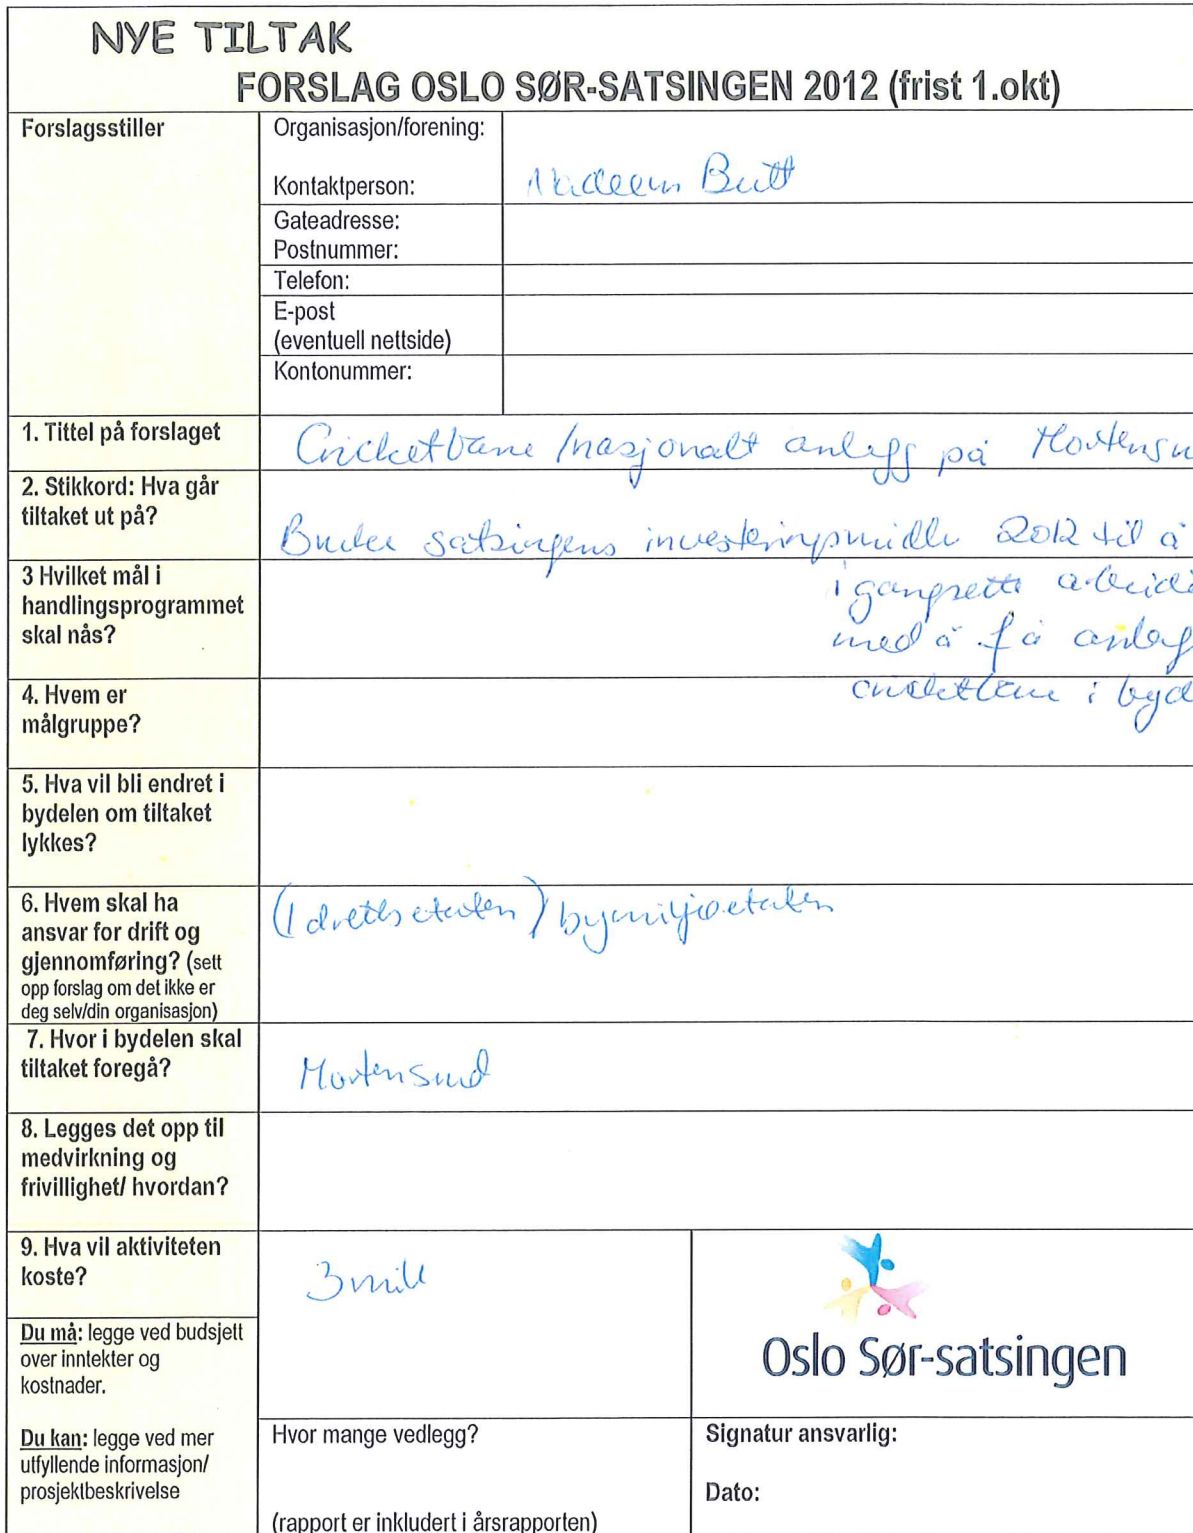 NYE TILTAK
FORSLAG OSLO SØR-SATSINGEN 2012 (frist 1.okt)
Forslagsstiller
Organisasjon/forening:
Kontaktperson: Nadeem Butt
Gateadresse:
Postnummer:
Telefon:
E-post
(eventuell nettside)
Kontonummer:
1. Tittel på forslaget
Cricketbane /nasjonalt anlegg på Mortensru
2. Stikkord: Hva går
tiltaket ut på?
Bruker satsingens investeringsmidler 2012 til å
igangsette arbeide
med å få anleg
cricketbane i byd
3 Hvilket mål i
handlingsprogrammet
skal nås?
4. Hvem er
målgruppe?
5. Hva vil bli endret i
bydelen om tiltaket
lykkes?
6. Hvem skal ha
ansvar for drift og
gjennomføring? (sett
opp forslag om det ikke er
deg selv/din organisasjon)
(Idrettsetaten) bymiljøetaten
7. Hvor i bydelen skal
tiltaket foregå?
Mortensrud
8. Legges det opp til
medvirkning og
frivillighet/ hvordan?
9. Hva vil aktiviteten
koste?
3 mill
Oslo Sør-satsingen
Du må: legge ved budsjett
over inntekter og
kostnader.
Du kan: legge ved mer
utfyllende informasjon/
prosjektbeskrivelse
Hvor mange vedlegg?
(rapport er inkludert i årsrapporten)
Signatur ansvarlig:
Dato: